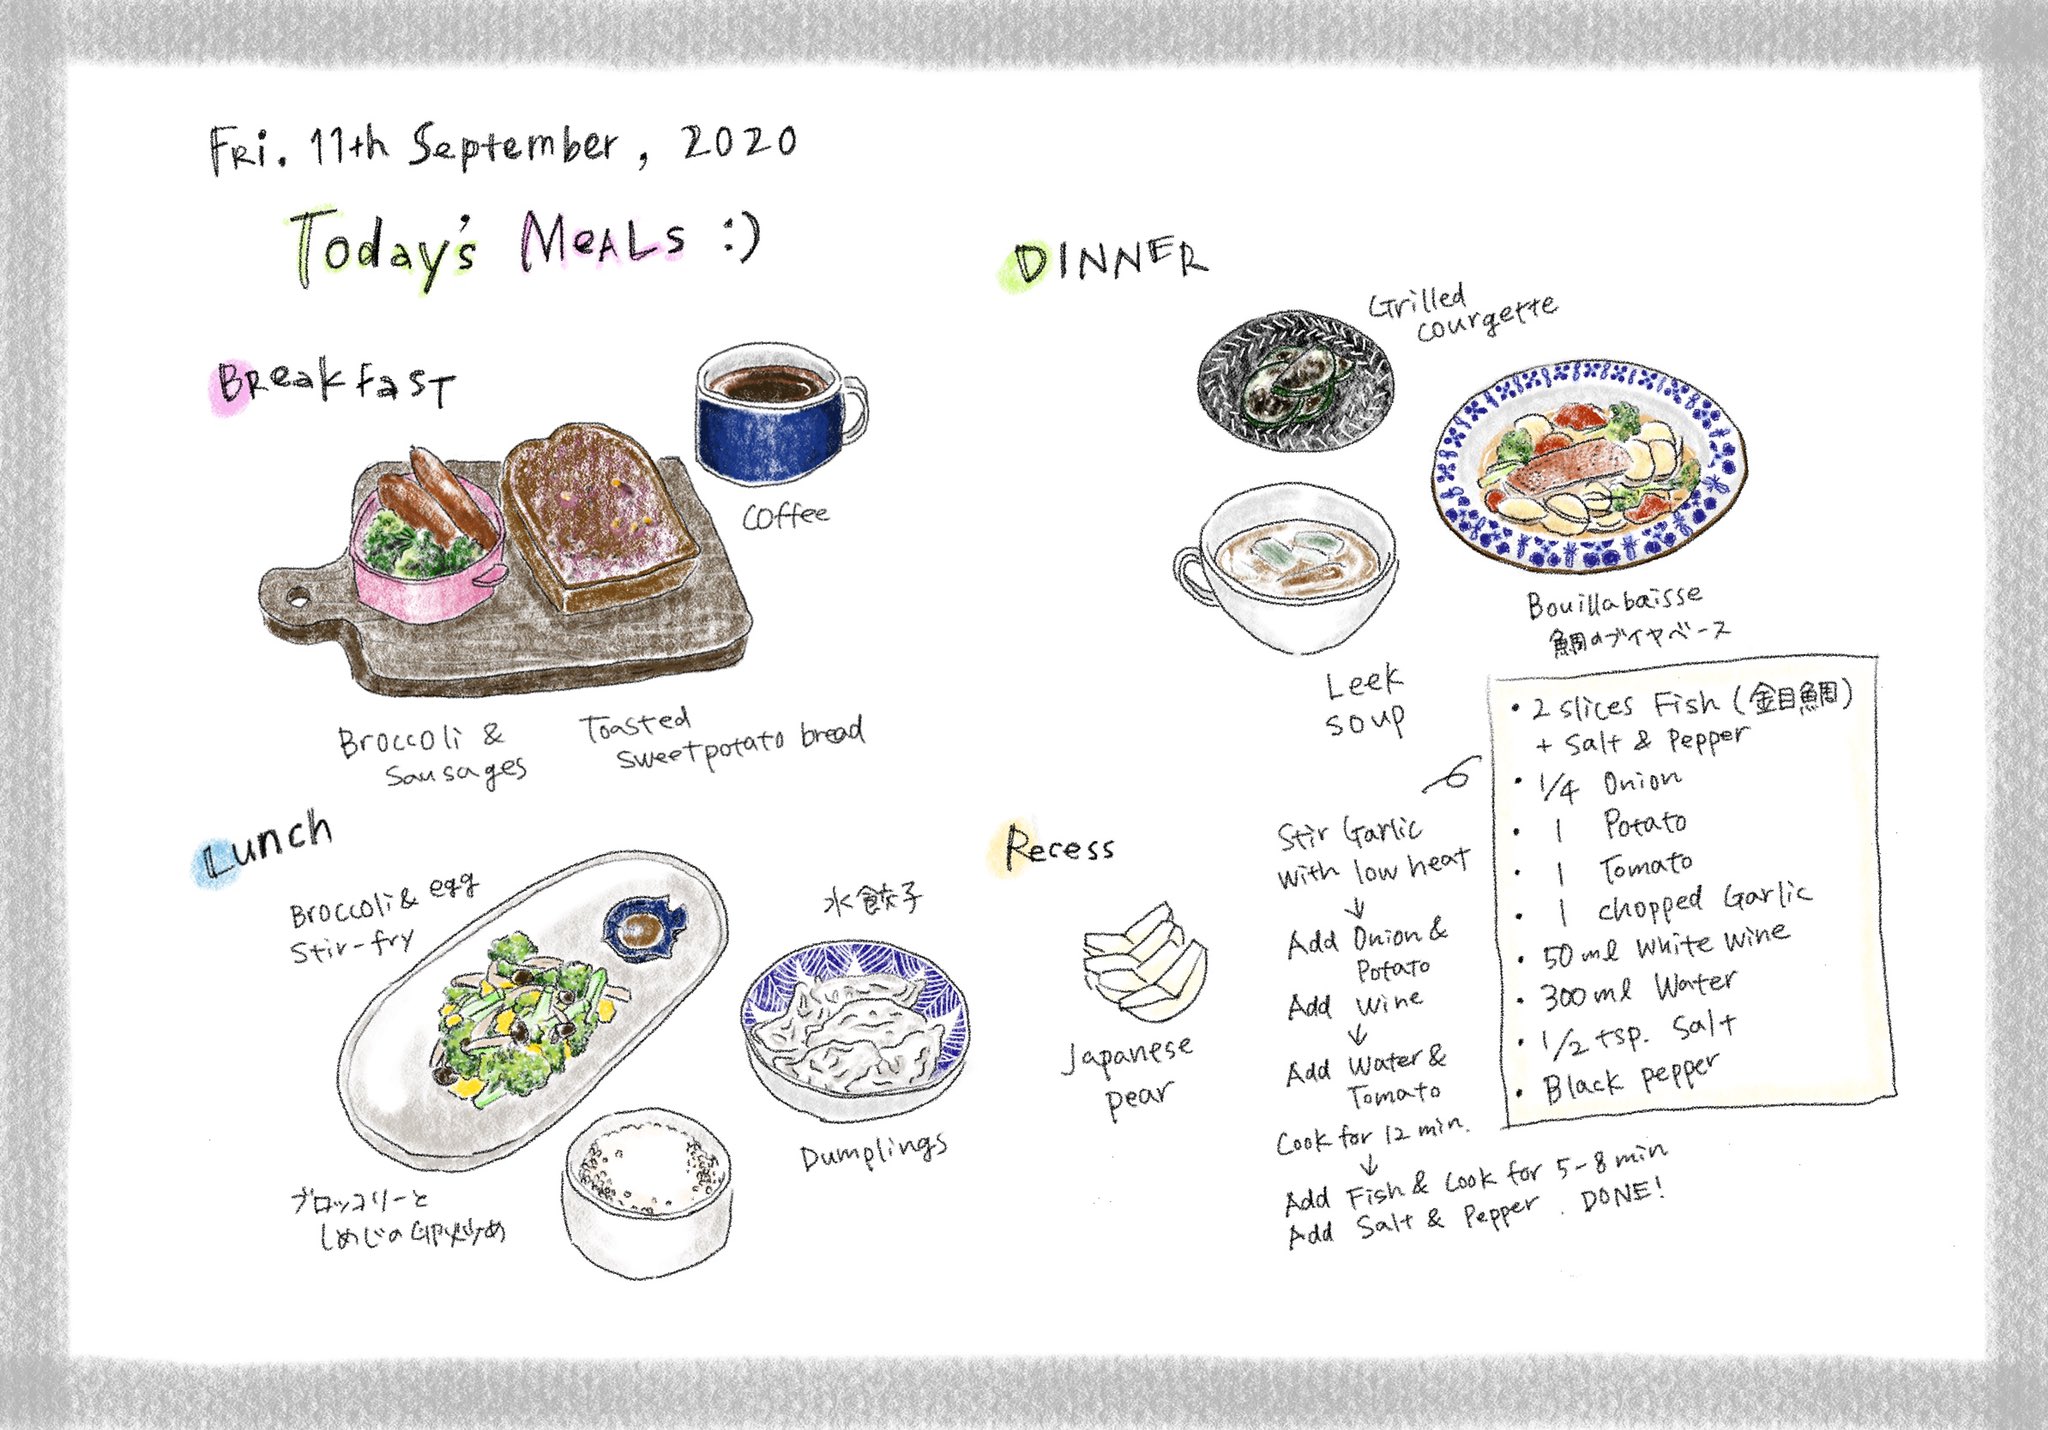 Fri. 11th September, 2020
Today's Meals :)
Breakfast
Coffee
Broccoli &
Sausages
Toasted
Sweetpotato bread
Lunch
Broccoli & egg
Stir-fry
ブロッコリーと
しめじの卵炒め
水餃子
Dumplings
DINNER
Grilled
courgette
Leek
soup
Bouillabaisse
鯛のブイヤベース
• 2 slices Fish (金目鯛)
+ Salt & Pepper
• 1/4 Onion
• 1 Potato
• 1 Tomato
• 1 chopped Garlic
• 50ml White Wine
• 300ml Water
• 1/2 tsp. Salt
• Black pepper
Stir Garlic
with low heat
↓
Add Onion &
Potato
Add Wine
↓
Add Water &
Tomato
Cook for 12 min.
↓
Add Fish & Cook for 5-8 min
Add Salt & Pepper. DONE!
Recess
Japanese
pear